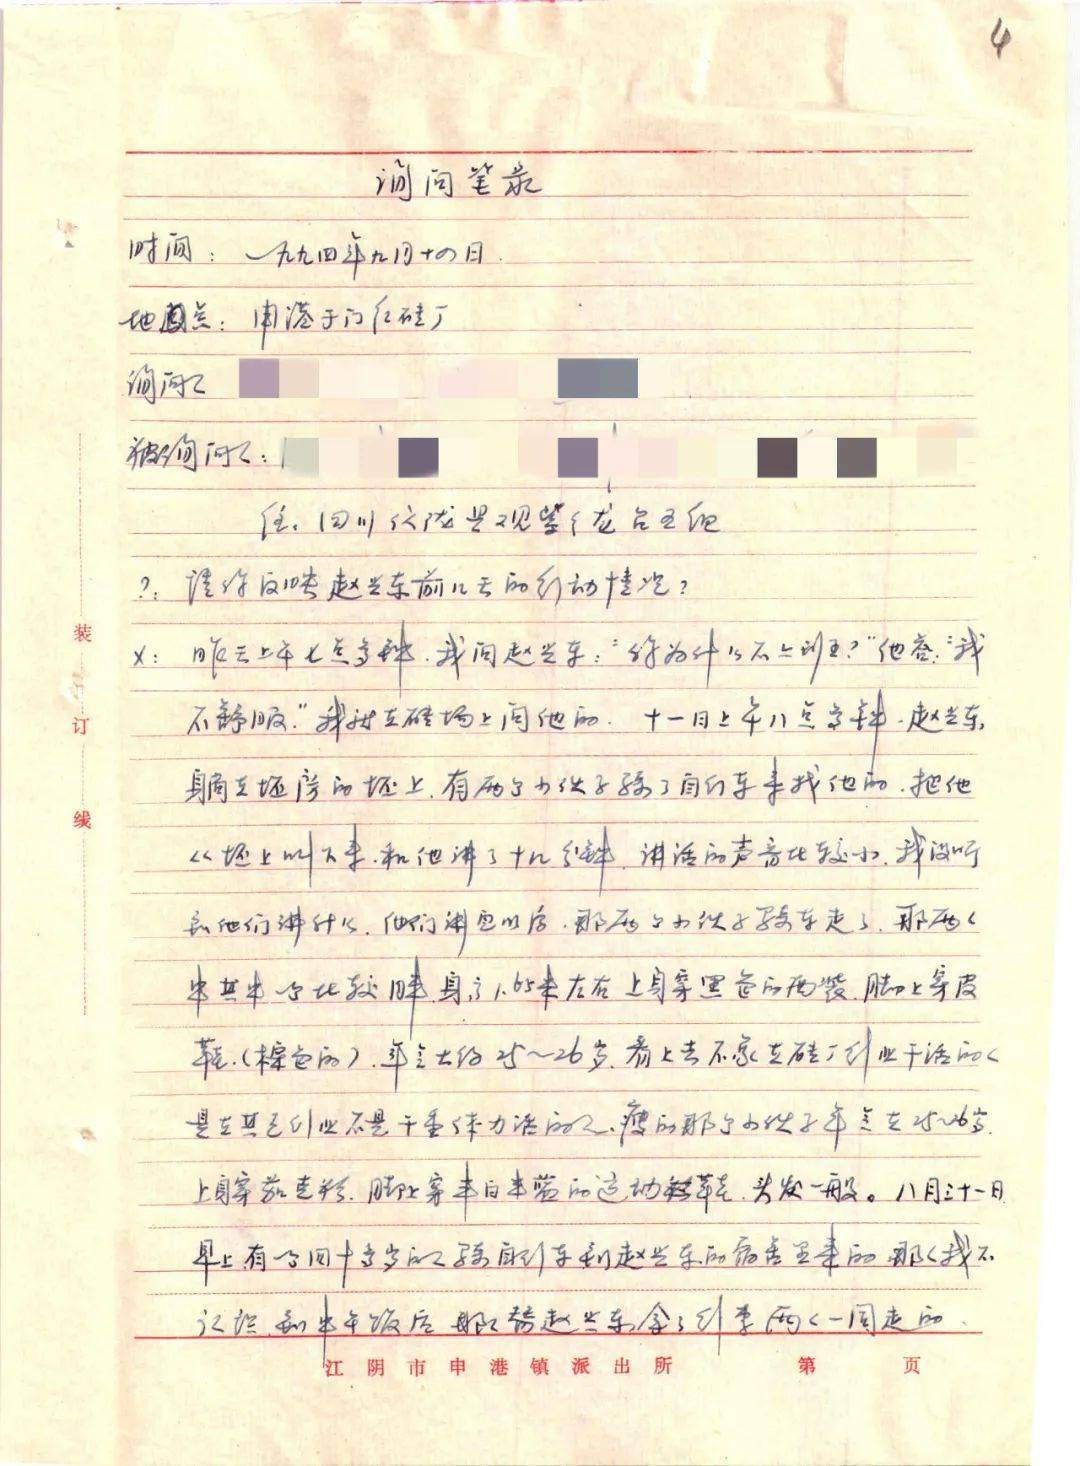 4
询问笔录
时间：一九九四年九月十四日.
地点：申港于门红砖厂
询问人
被询问人：
住：四川仪陇县观紫 龙台五组
?：请你反映赵兴东前几天的行动情况？
×：昨天上午七点多钟，我问赵兴东："你为什么不上班？"他答："我
不舒服."我就在砖场上问他的. 十一日上午八点多钟，赵兴东
躺在坯房的坯上，有两个小伙子骑了自行车来找他的，把他
从坯上叫下来，和他讲了十几分钟，讲话的声音比较小，我没听
到他们讲什么，他们讲完以后，那两个小伙子骑车走了，那两人
中其中一个比较胖，身高1.65米左右，上身穿黑色的西装，脚上穿皮
鞋，(棕色的)，年令大约25～26岁，看上去不象在砖厂行业干活的人
是在其它行业不是干重体力活的人，瘦的那个小伙子年令在25～26岁，
上身穿茄克衫，脚上穿半白半蓝的运动鞋，头发一般。八月三十一日
早上有一个四十多岁的人骑自行车到赵兴东的宿舍里来的，那人我不
认识，到中午饭后，那人帮赵兴东拿了行李两人一同走的，
装
订
线
江阴市申港镇派出所 第 页